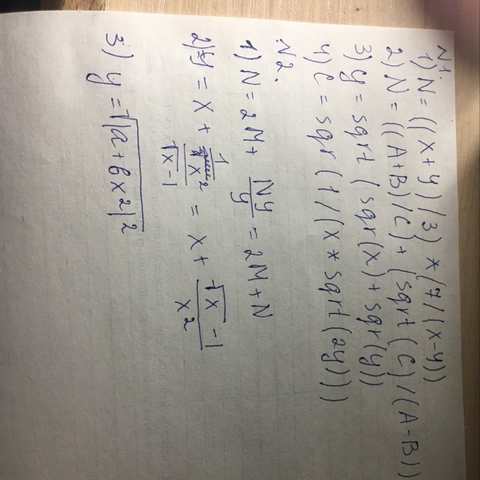 N1.
1) N = ((x+y)/3) * (7/(x-y))
2) N = ((A+B)/C) + (sqrt(C)/(A-B))
3) y = sqrt(sqr(x)+sqr(y))
4) C = sqr(1/(x*sqrt(2y)))
N2.
1) N = 2M + Ny/y = 2M+N
2) y = x + 1/(x2/(√x-1)) = x + (√x-1)/x2
3) y = √|a+bx2|2